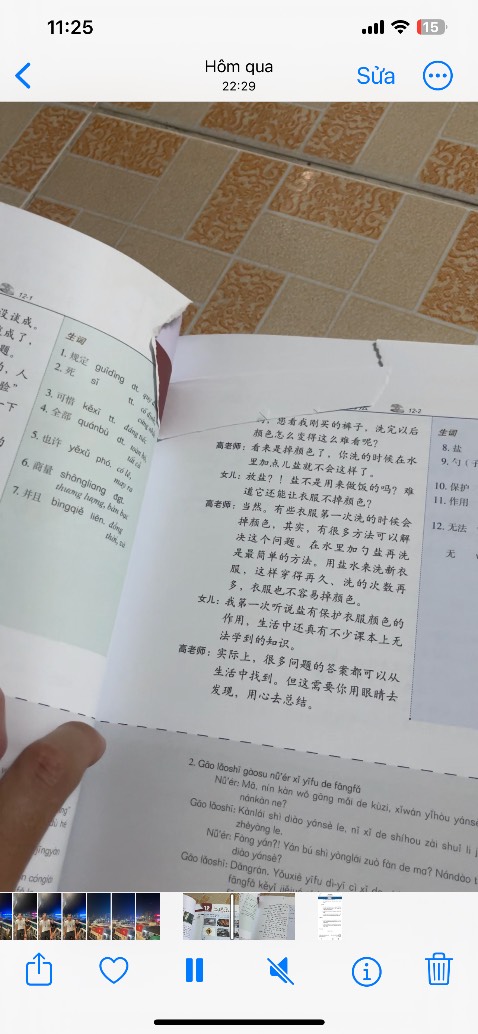 11:25
15
Hôm qua
22:29
Sửa
12-1
没谈成。
成了，
题。
，人
验”
一下
生词
1. 规定 guīdìng đt.
2. 死 sǐ tt.
3. 可惜 kěxī tt. đáng tiếc
4. 全部 quánbù dt. toàn bộ,
tất cả
5. 也许 yěxǔ phó. có lẽ,
may ra
6. 商量 shāngliang đgt.
thương lượng, bàn bạc
7. 并且 bìngqiě liên. đồng
thời, và
12-2
，您看我刚买的裤子，洗完以后
颜色怎么变得这么难看呢？
高老师：看来是掉颜色了，你洗的时候在水
里加点儿盐就不会这样了。
女儿：放盐？！盐不是用来做饭的吗？难
道它还能让衣服不掉颜色？
高老师：当然。有些衣服第一次洗的时候会
掉颜色，其实，有很多方法可以解
决这个问题。在水里加勺盐再洗
是最简单的方法。用盐水来洗新衣
服，这样穿得再久、洗的次数再
多，衣服也不容易掉颜色。
女儿：我第一次听说盐有保护衣服颜色的
作用，生活中还真有不少课本上无
法学到的知识。
高老师：实际上，很多问题的答案都可以从
生活中找到。但这需要你用眼睛去
发现，用心去总结。
生词
8. 盐
9. 勺（子
10. 保护
11. 作用
12. 无法
无
2. Gāo lǎoshī gàosu nǚ'ér xǐ yīfu de fāngfǎ
Nǚ'ér: Mā, nín kàn wǒ gāng mǎi de kùzi, xǐwán yǐhòu yánsè
nánkàn ne?
Gāo lǎoshī: Kànlái shì diào yánsè le, nǐ xǐ de shíhou zài shuǐ li j
zhèyàng le.
Nǚ'ér: Fàng yán?! Yán bú shì yònglái zuò fàn de ma? Nándào t
diào yánsè?
Gāo lǎoshī: Dāngrán. Yǒuxiē yīfu dì-yī cì xǐ de
fāngfǎ kěyǐ jiějué